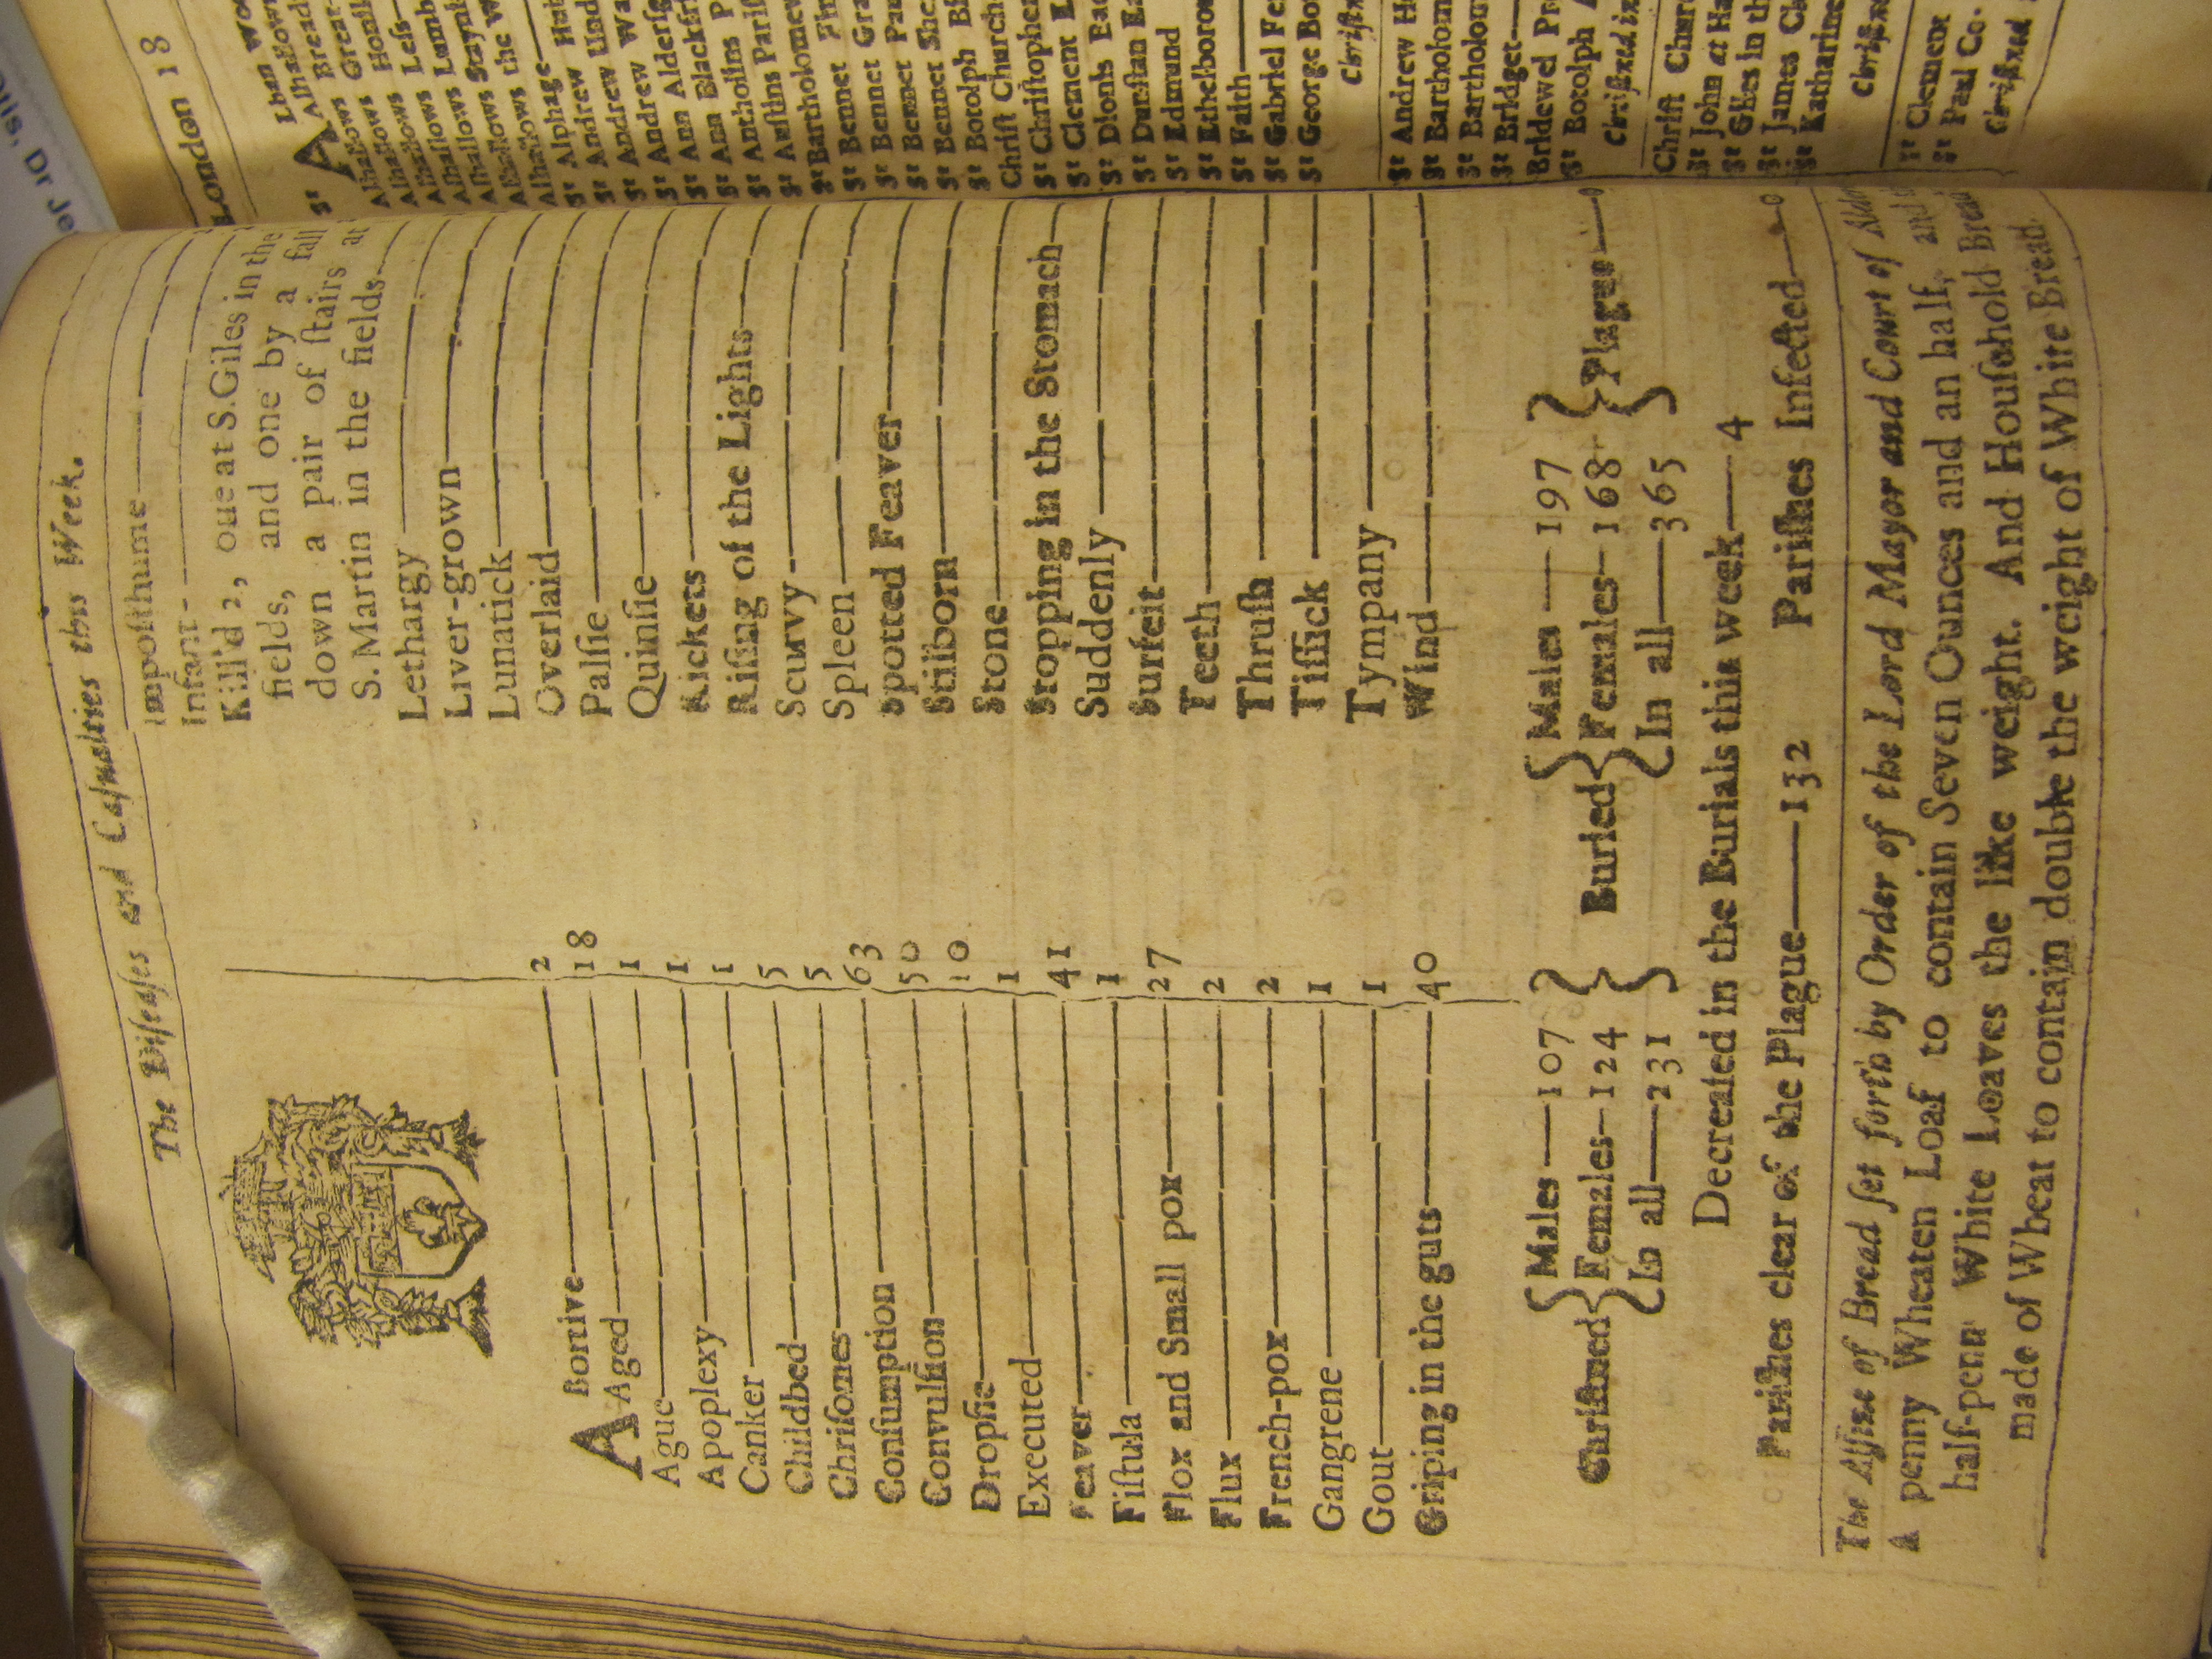 The Diſeaſes and Caſualties this Week.
ABortive 2
Aged 18
Ague 1
Apoplexy 1
Canker 1
Childbed 5
Chriſomes 5
Conſumption 63
Convulſion 50
Dropſie 10
Executed 1
Feaver 41
Fiſtula 1
Flox and Small pox 27
Flux 2
French-pox 2
Gangrene 1
Gout 1
Griping in the guts 40
Impoſthume
Infant
Kill'd 2, oue at S. Giles in the
fields, and one by a fall
down a pair of ſtairs at
S. Martin in the fields
Lethargy
Liver-grown
Lunatick
Overlaid
Palſie
Quinſie
Rickets
Riſing of the Lights
Scurvy
Spleen
Spotted Feaver
Stilborn
Stone
Stopping in the Stomach
Suddenly
Surfeit
Teeth
Thruſh
Tiſſick
Tympany
Wind
Chriſtned { Males 107 Females 124 In all 231 }
Buried { Males 197 Females 168 In all 365 } Plague 0
Decreaſed in the Burials this week 4
Pariſhes clear of the Plague 132 Pariſhes Infected 0
The Aſſize of Bread ſet forth by Order of the Lord Mayor and Court of
A penny Wheaten Loaf to contain Seven Ounces and an half, and
half-penny White Loaves the like weight. And Houſhold Bread
made of Wheat to contain double the weight of White Bread.
London 18
Alban Woo
St Alhallows
Alhallows Bread
Alhallows Great
Alhallows Honi
Alhallows Leſs
Alhallows Lumb
Alhallows Stayni
Alhallows the W
Alhallows
St Alphage
St Andrew Hub
St Andrew Und
St Andrew Wa
St Ann Alderſg
St Ann Blackfri
St Antholins P
St Auſtins Pariſ
St Bartholomew
St Bennet Fin
St Bennet Gra
St Bennet Pau
St Bennet She
St Botolph Bi
Chriſt Church
St Chriſtopher
St Clement E
St Dionis Bac
St Dunſtan Ea
St Edmund
St Ethelboro
St Faith
St Gabriel Fe
St George Bo
Chriſtn
St Andrew H
St Bartholom
St Bartholom
St Bridget
Bridewel Pr
St Botolph A
Chriſtned in
Chriſt Churc
St John at Ha
St Giles in th
St James Cl
St Katharine
Chriſtne
St Clement
St Paul Co
Chriſtned